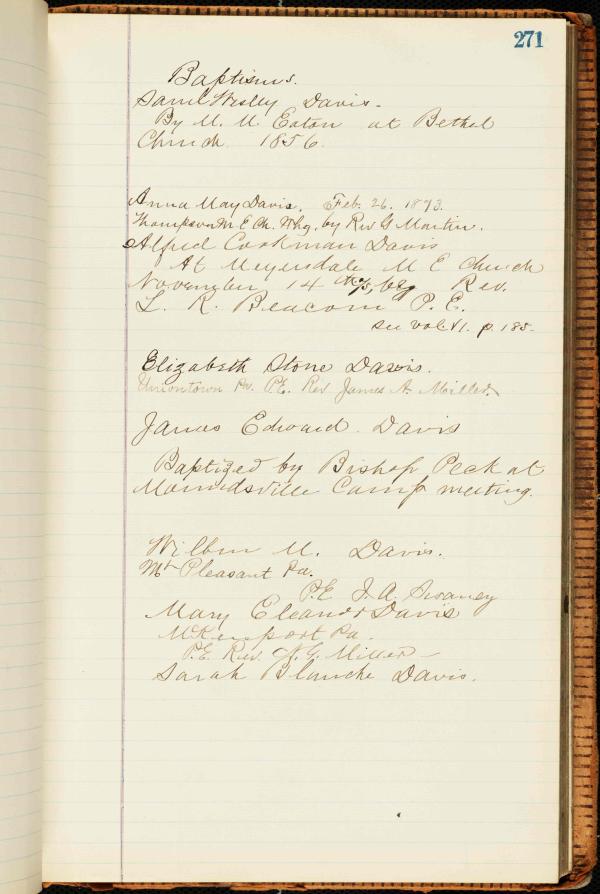 271
Baptisms.
Saml Wesley Davis.
By M. M. Eaton at Bethel
Church 1856.
Anna May Davis. Feb. 26. 1873.
Thompson M. E. Ch. Whg. by Rev G Martin.
Alfred Cookman Davis
At Meyersdale M E Church
November 14 by Rev.
L. R. Beacom P. E.
see vol. VI. p. 185-
Elizabeth Stone Davis.
Uniontown Pa. P.E. Rev James A. Miller.
James Edward Davis
Baptized by Bishop Peck at
Moundsville Camp meeting.
Wilbur M. Davis.
Mt Pleasant Pa.
P.E J. A. Swaney
Mary Eleanor Davis
McKeesport Pa.
P.E. Rev. Miller
Sarah Blanche Davis.